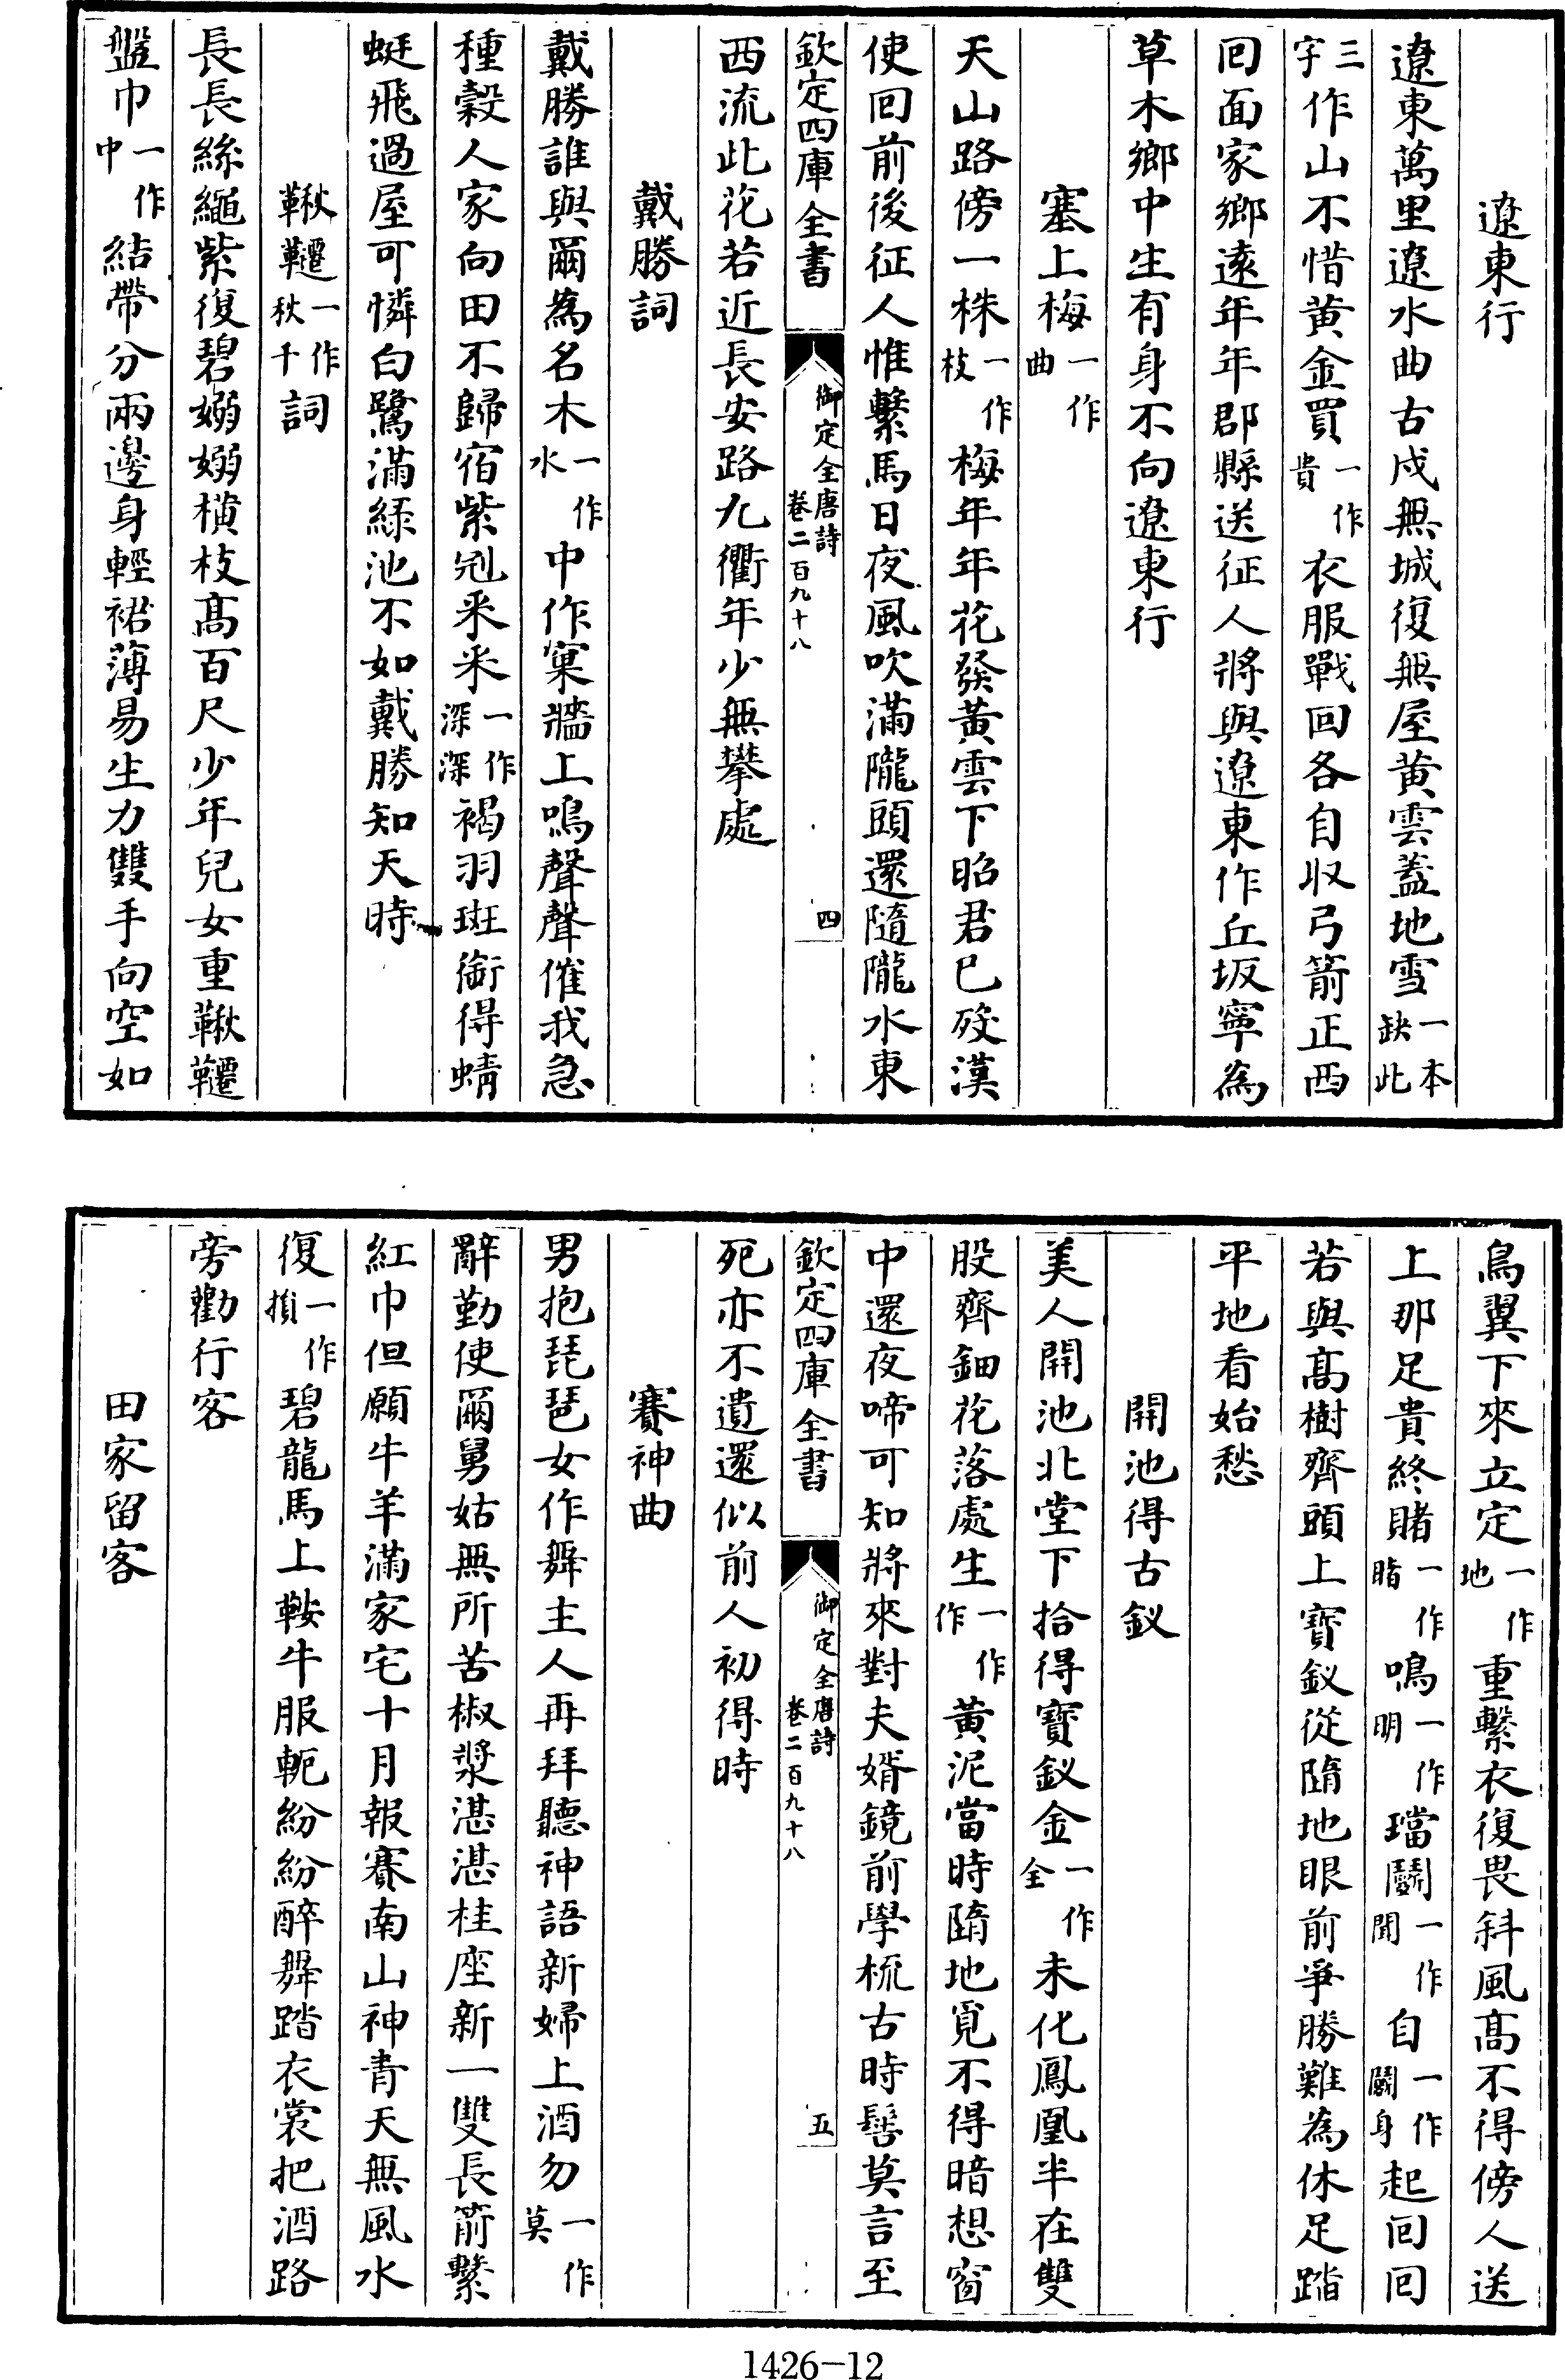 遼東行
遼東萬里遼水曲古戍無城復無屋黄雲蓋地雪一本缺此
三字作山不惜黄金買一作貴衣服戰回各自收弓箭正西
回面家鄉逺年年郡縣送征人將與遼東作丘坂寧為
草木鄉中生有身不向遼東行
塞上梅一作曲
天山路傍一株一作枝梅年年花發黄雲下昭君已歿漢
使回前後征人惟繫馬日夜風吹滿隴頭還隨隴水東
欽定四庫全書 御定全唐詩卷二百九十八 四
西流此花若近長安路九衢年少無攀處
戴勝詞
戴勝誰與爾為名木一作水中作窠牆上鳴聲聲催我急
種穀人家向田不歸宿紫冠采采一作深深褐羽斑銜得蜻
蜓飛過屋可憐白鷺滿緑池不如戴勝知天時
鞦韆一作秋千詞
長長絲繩紫復碧嫋嫋横枝髙百尺少年兒女重鞦韆
盤巾一作中結帶分兩邊身輕裙薄易生力雙手向空如
鳥翼下來立定一作地重繫衣復畏斜風髙不得傍人送
上那足貴終賭一作睹鳴一作明璫鬭一作聞自一作鬭身起回回
若與髙樹齊頭上寳釵從墮地眼前爭勝難為休足踏
平地看始愁
開池得古釵
美人開池北堂下拾得寳釵金一作全未化鳳凰半在雙
股齊鈿花落處生一作作黄泥當時墮地覓不得暗想窗
中還夜啼可知將來對夫婿鏡前學梳古時髻莫言至
欽定四庫全書 御定全唐詩卷二百九十八 五
死亦不遺還似前人初得時
賽神曲
男抱琵琶女作舞主人再拜聽神語新婦上酒勿一作莫
辭勤使爾舅姑無所苦椒漿湛湛桂座新一雙長箭繫
紅巾但願牛羊滿家宅十月報賽南山神青天無風水
復一作損碧龍馬上鞍牛服軛紛紛醉舞踏衣裳把酒路
旁勸行客
田家留客
1426-12